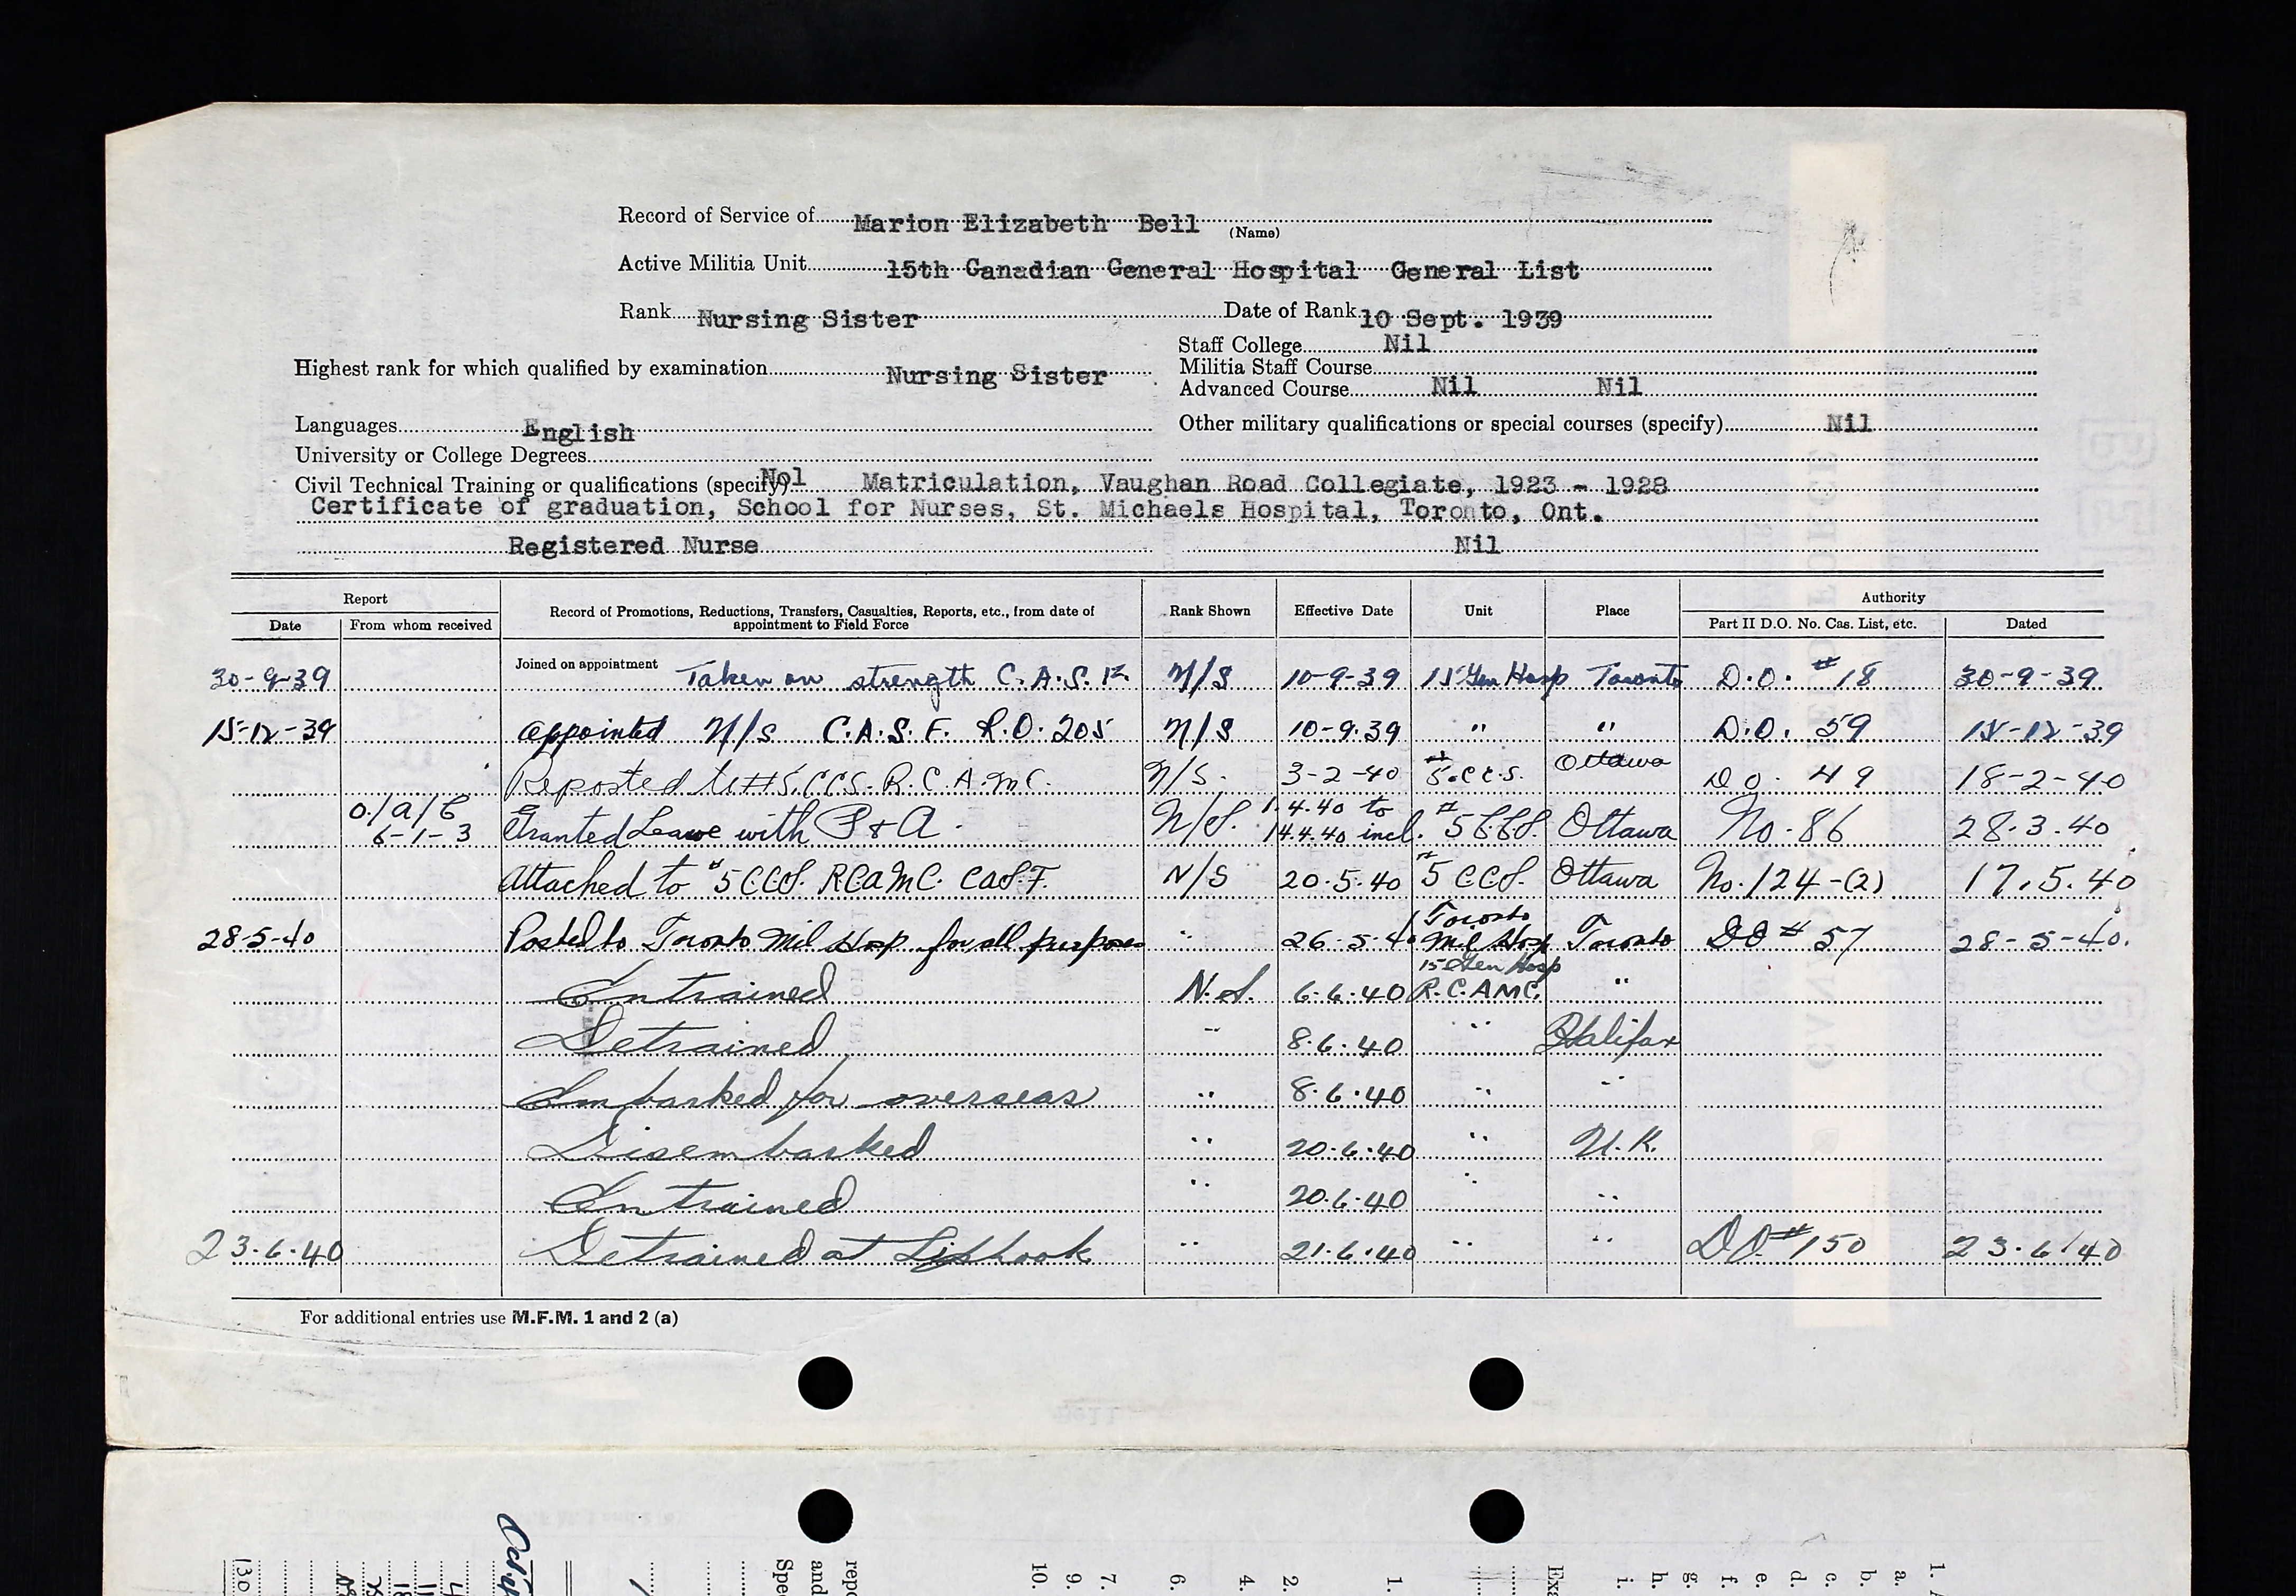 Record of Service of Marion Elizabeth Bell
(Name)
Active Militia Unit 15th Canadian General Hospital General List
Rank Nursing Sister Date of Rank 10 Sept. 1939
Staff College Nil
Highest rank for which qualified by examination Nursing Sister Militia Staff Course
Advanced Course Nil Nil
Languages English Other military qualifications or special courses (specify) Nil
University or College Degrees
Civil Technical Training or qualifications (specify) Nol Matriculation, Vaughan Road Collegiate, 1923 - 1928
Certificate of graduation, School for Nurses, St. Michaels Hospital, Toronto, Ont.
Registered Nurse Nil
Report Record of Promotions, Reductions, Transfers, Casualties, Reports, etc., from date of appointment to Field Force Rank Shown Effective Date Unit Place Authority
Date From whom received Part II D.O. No. Cas. List, etc. Dated
30-9-39 Joined on appointment Taken on strength C.A.S.F. N/S 10-9-39 15 Gen Hosp Toronto D.O. #18 30-9-39
15-12-39 appointed N/S C.A.S.F. R.O. 205 N/S 10-9-39 " " D.O. 59 15-12-39
Reposted to #5 CCS. R.C.A.M.C. N/S. 3-2-40 #5.C.C.S. Ottawa D O. 49 18-2-40
O/A/C 6-1-3 Granted Leave with P & A. N/S. 1.4.40 to 14.4.40 incl. #5 CCS. Ottawa No. 86 28.3.40
Attached to #5 CCS. RCAMC. CASF. N/S 20.5.40 #5 CCS. Ottawa No. 124-(2) 17.5.40
28-5-40 Posted to Toronto Mil Hosp for all purposes " 26-5-40 Toronto Mil Hosp Toronto DO # 57 28-5-40.
Entrained N.S. 6.6.40 15 Gen Hosp R.C.AMC. "
Detrained " 8.6.40 " Halifax
Embarked for overseas " 8.6.40 " "
Disembarked " 20.6.40 " U.K.
Entrained " 20.6.40 " "
23.6.40 Detrained at Liphook " 21.6.40 " " DO #150 23.6.40
For additional entries use M.F.M. 1 and 2 (a)
10.
9.
7.
6.
4.
2.
1.
i.
h.
g.
f.
e.
d.
c.
b.
a.
1.